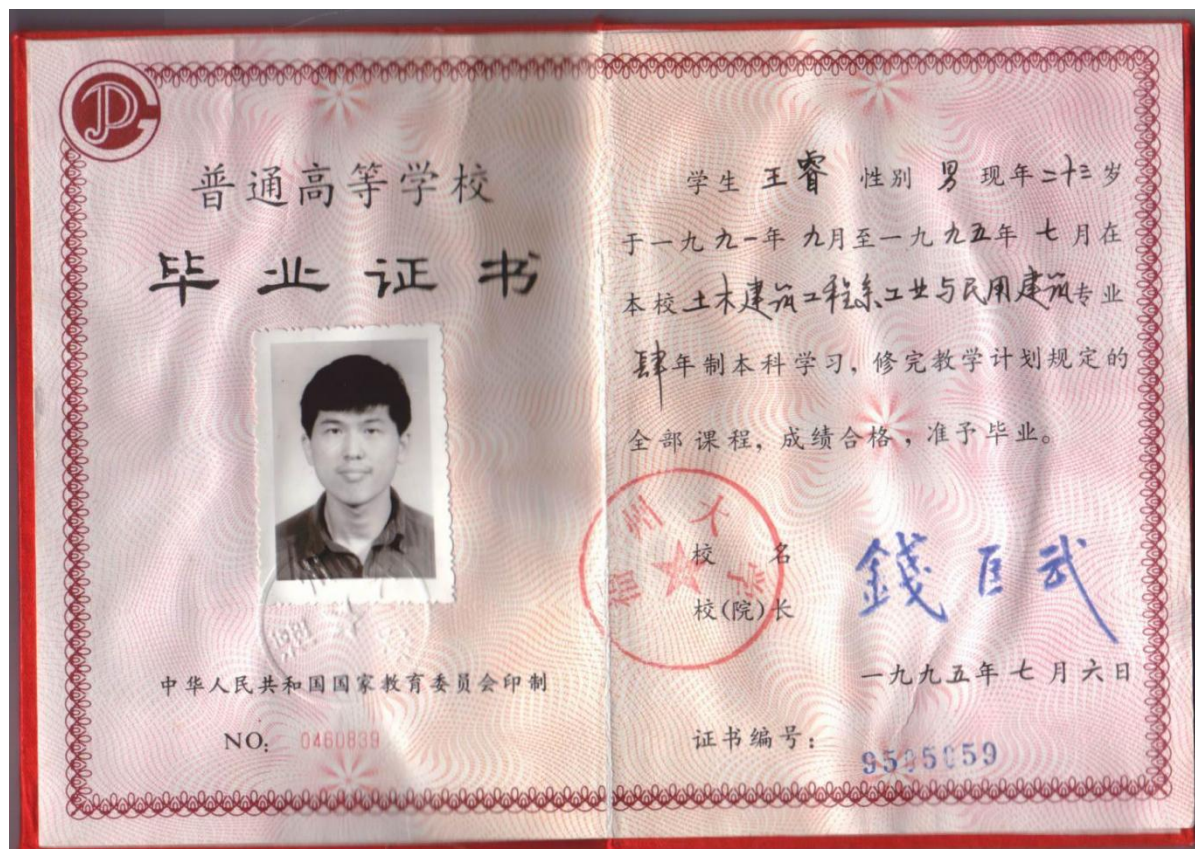 普通高等学校
毕业证书
中华人民共和国国家教育委员会印制
NO: 0460839
学生 王睿 性别 男 现年二十三岁
于一九九一年 九月至一九九五年 七月在
本校土木建筑工程系工业与民用建筑专业
肆年制本科学习，修完教学计划规定的
全部课程，成绩合格，准予毕业。
州大学
校名
校(院)长
錢匡武
一九九五年七月六日
证书编号：
9505059